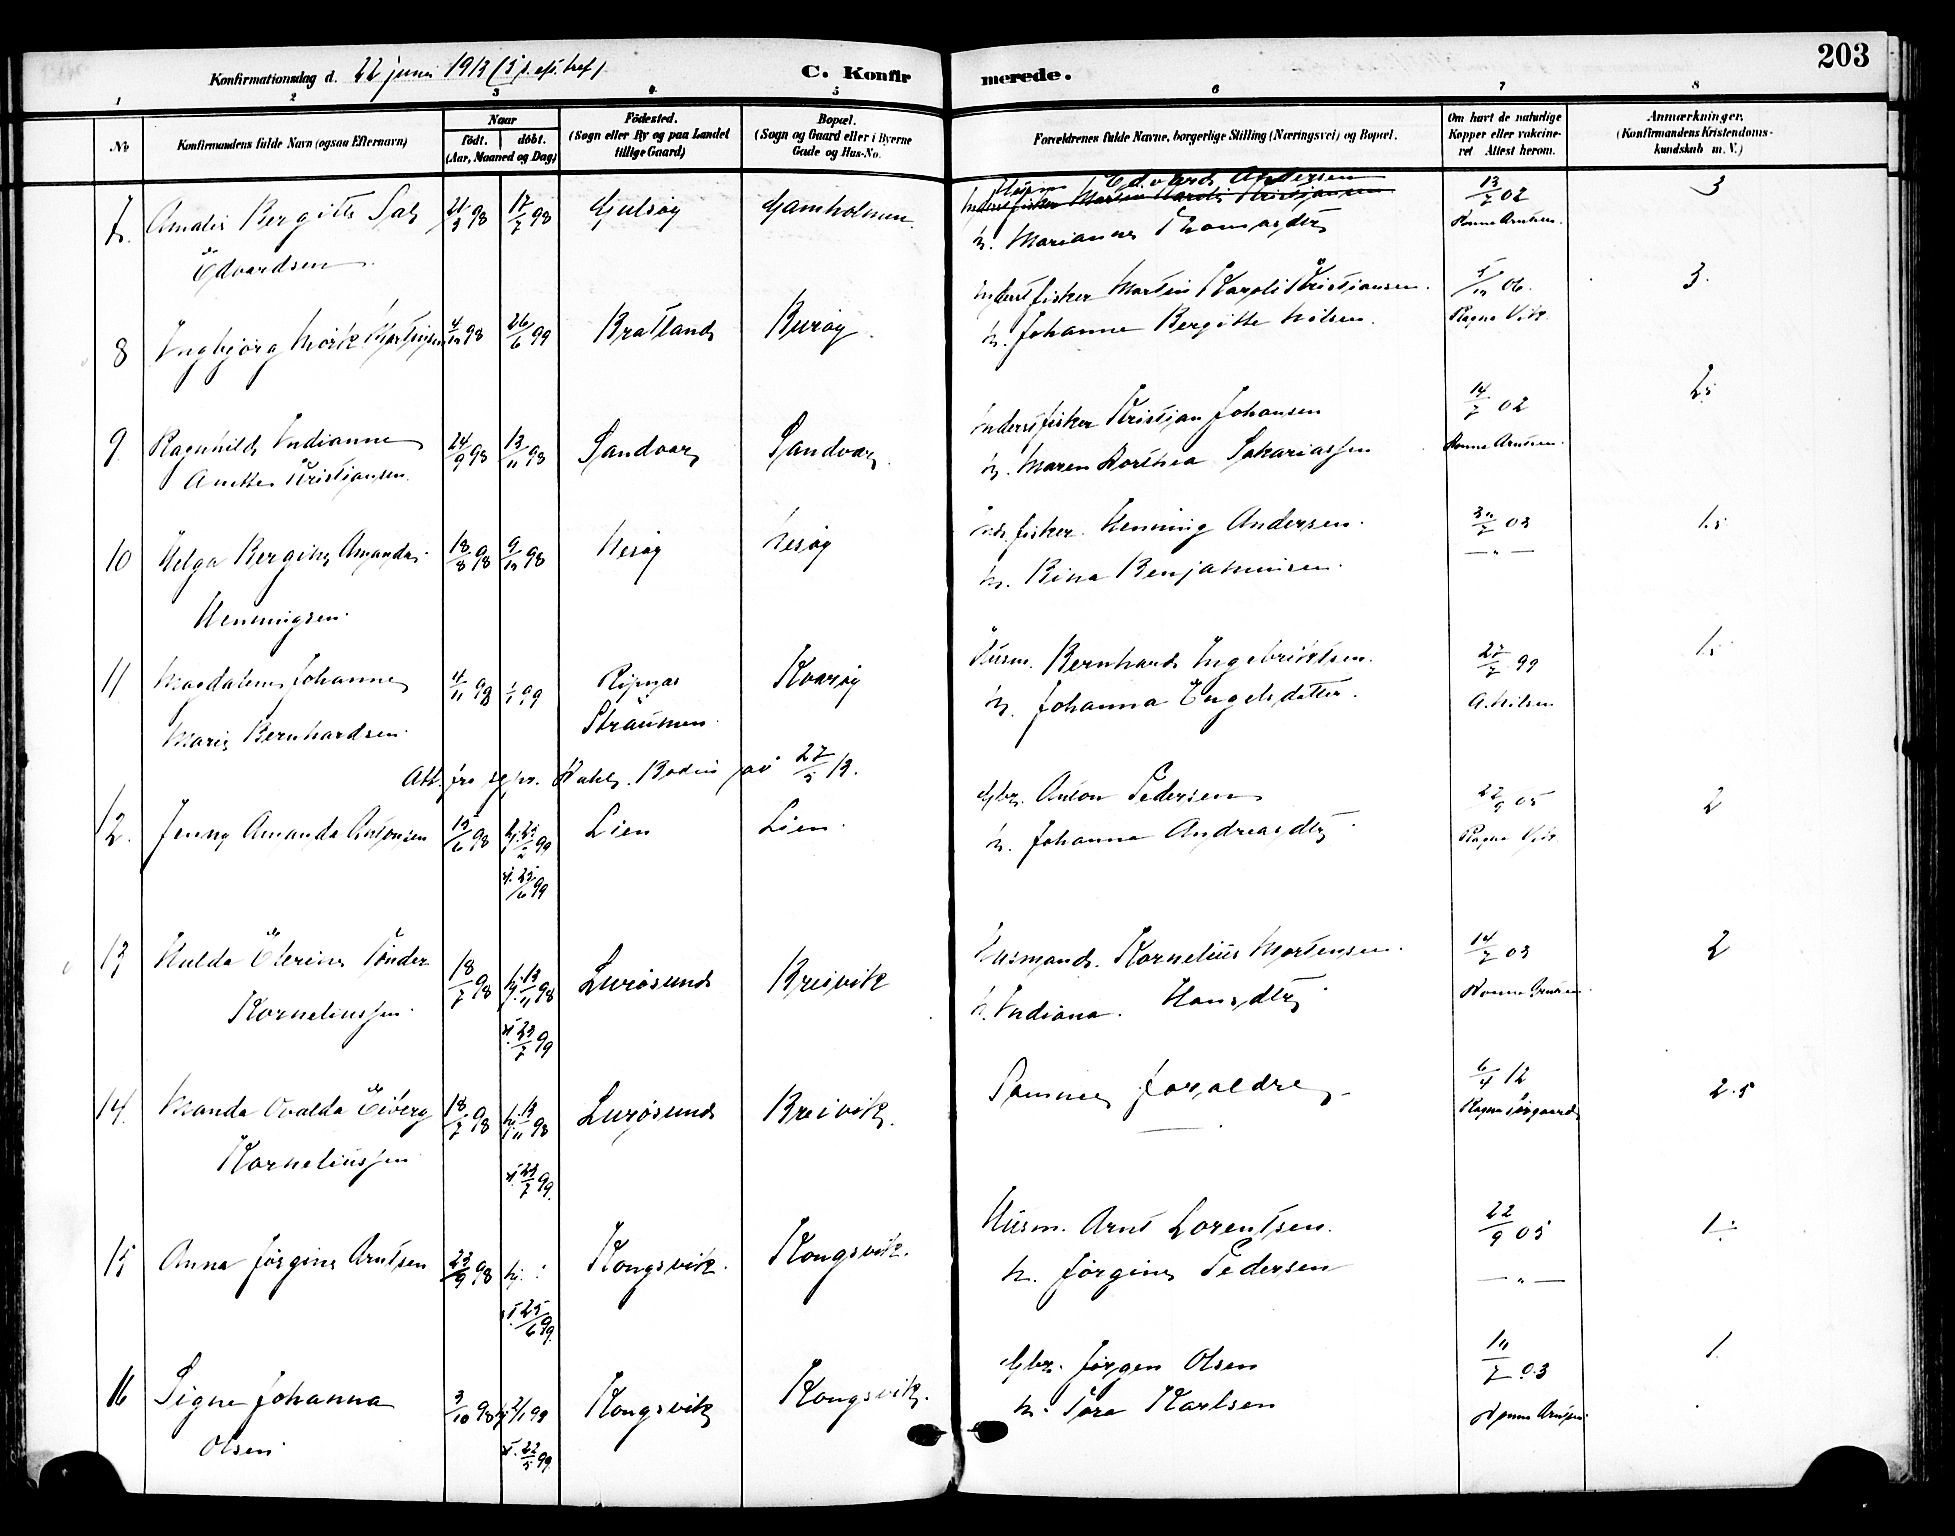 203
Konfirmationsdag d. 22 juni 1913 (5 s. eft. tref)
C. Konfirmerede.
1 2 3 4 5 6 7 8
No
Konfirmandens fulde Navn (ogsaa Efternavn)
Naar
født. døbt.
(Aar, Maaned og Dag)
Fødested.
(Sogn eller By og paa Landet
tillige Gaard)
Bopæl.
(Sogn og Gaard eller i Byerne
Gade og Hus-No.
Forældrenes fulde Navne, borgerlige Stilling (Næringsvei) og Bopæl.
Om havt de naturlige
Kopper eller vakcine-
ret Attest herom.
Anmærkninger.
(Konfirmandens Kristendoms-
kundskab m. V.)
7. Amalie Bergitte
Edvardsen
21/3 98 17/7 98 Gjulsøy Gamholmen
Edvard Andersen
Inderst fisker Martin Karoli Kristiansen
h. Marianne Thomasdtr
13/7 02
Hanna Arntsen.
3
8 Ingbjørg Mørk Martinsen 4/10 98 26/6 99 Bratland Burøy.
Inderst fisker Martin Karoli Kristiansen.
h. Johanne Bergitte Nilsen.
5/10 06.
Ragna Vik.
3.
9 Ragnhild Indianne
Anette Kristiansen.
24/9 98 13/11 98 Sandvær Sandvær
Inderst fisker Kristian Johansen
h. Maren Dorthea Sakariassen
14/7 02
Hanna Arntsen.
10 Helga Bergine Amanda
Henningsen.
18/8 98 9/10 98 Nesøy Nesøy
Ind. fisker. Henning Andersen.
h. Rina Benjaminsen.
03
— " —
1.5
11 Magdalene Johanne
Marie Bernhardsen.
4/11 98 1/1 99 Ripnæs
Straumen.
Kvarøy
Husm. Bernhard Ingebriktsen.
h. Johanna Engelsdatter.
27/7 99
A. Nilsen
Att. fra sgpr. Bodin 27/5 13.
12. Jenny Amanda Antonsen 15/6 98 hj. 25/2 99
k. 25/6 99
Lien Lien.
Gbr. Anton Pedersen
h. Johanna Andreasdtr
22/9 05
Ragna Vik
2
13 Hulda Elerine Tønder
Korneliussen.
18/7 98 hj. 13/11 98
k. 23/7 99
Lurøsund Breivik
Husmand. Kornelius Mortensen.
h. Indiana. Hansdtr
14/7 03
Hanna Arntsen
2
14. Manda Ovalda Eiberg
Korneliussen
18/7 98 hj. 13/11 98
k. 23/7 99.
Lurøsund Breivik.
Samme forældre
6/4 12
2.5
15 Anna Jørgine Arntsen 23/9 98 hj.
k. 25/6 99.
Kongsvik. Kongsvik.
Husm. Arnt Lorentsen.
h. Jørgine Pedersen
22/9 05
— " —
16 Signe Johanna
Olsen.
3/10 98 hj. 2/1 99
k. 22/5 99.
Kongsvik Kongsvik.
Gbr. Jørgen Olsen
h. Tora Karlsen
03
Hanna Arntsen
1.